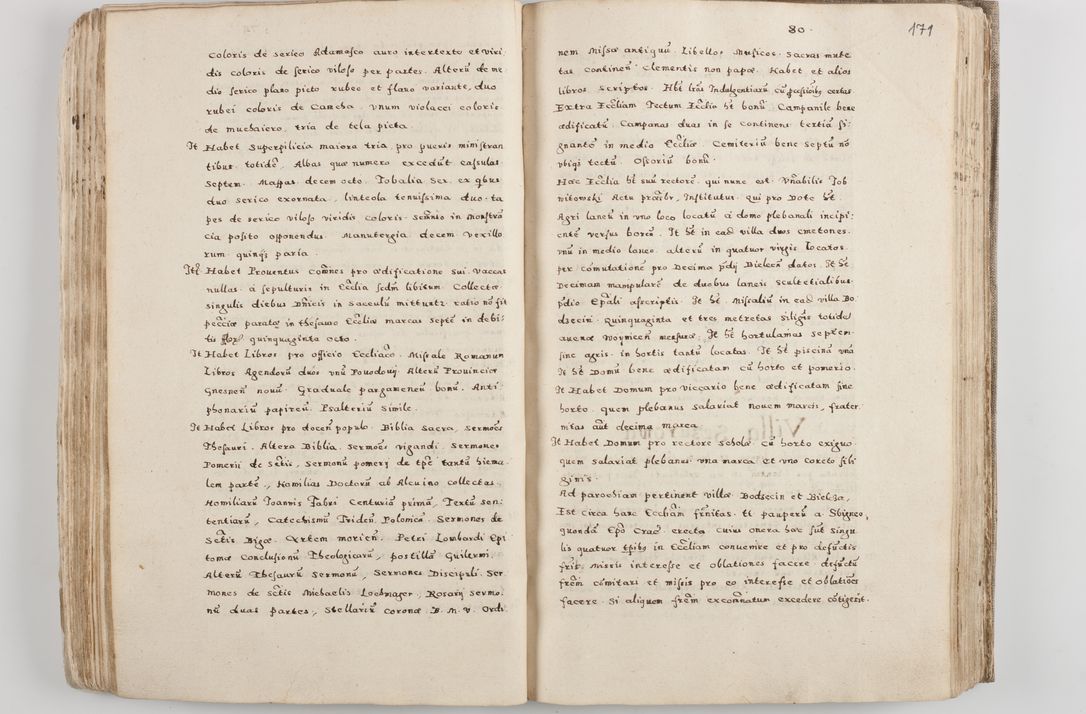 coloris de serico Adamasco auro intertexto et viri
dis coloris de serico viloso per partes. Alterũ de me
dio serico plano picto rubeo et flauo variante, duo
rubei coloris de Cancha. vnum violacei coloris
de muchaiero. tria de tela picta.
It Habet Superpilicia maiora tria, pro pueris ministran
tibus totidẽ, Albas quæ numero excedũt casulas
septem. Mappas decem octo. Tobalia Sex. ex qbus
duo serico exornata, linteola tenuissima duo. ta
pes de serico viloso viridis coloris. Scãnio in Monstrã
cia posito opponendus. Manutergia decem. Vexillo
rum quinqꝫ paria.
Itẽ Habet Prouentus cõmnes pro ædificatione sui. Vaccas
nullas. à sepulturis in Ecclĩa scdm̃ libitum. Collecta
singulis diebus Dñicis in sacculũ mittuntr ratio nõ fit
pecciæ paratæ in thesauro Eccliæ marcas septẽ in debi
tis quinquaginta octo.
It Habet Libros pro officio Eccliaco. Missale Romanum
Libros Agendorũ duos vnũ Pouodouij Alterũ Prouinciæ
Gnesneñ nouũ. Graduale pargameneũ bonũ. Anti
phonariũ papireũ. Psalteriũ simile.
It Habet Libros pro doceñ populo. Biblia Sacra, sermões
Thesauri. Altera Biblia. Sermões vigandi. Sermones
Pomerij de Sctis, Sermonũ pomerij de tpẽ tantũ hiema
lem partẽ, Homilias Doctorũ ab Alcuino collectas,
Homiliarũ Joannis Fabri Centuriã primã, Textũ sen
tentiarũ, Catechismũ Tridẽn. Polonicũ. Sermones de
Sctis Bigæ. Artem morieñ. Petri Lombardi Epi
tomæ Conclusionũ Theologicarũ, postillã Guilermi.
Alterũ Thesaurũ Sermonũ, Sermones Discipuli. Ser
mones de sctis Michaelis Lochmajer, Rosarij sermo
nũ duas partes, Stellariũ Coronæ B. M. V. Ordi
80.
171
nem Missæ antiquũ. Libellos Musicos. Sacras mute
tas Continen̄ Clementis non papæ. Habet et alios
libros scriptos. Hẽt lrãs Indulgentiarũ cũ certas.
Extra Eccliam Tectum Ecclæ hẽt bonũ. Campanile bene
ædificatũ. Campanas duas in se continens tertiã si:
gnantẽ in medio Eccliæ. Cemiteriũ bene septũ nõ
vbiqꝫ tectũ. Ossoriũ bonũ.
Hæc Ecclia hẽt suũ rectorẽ. qui nunc est. Vñabilis Job
nitowski Actu præsbr, Institutus. Qui pro Doto hẽt
Agri laneũ in vno loco locatũ à domo plebanali incipi:
entẽ versus boreã. It hẽt in eadẽ villa duos cmetones.
vnũ in medio laneo. alterũ in quatuor virgis locatos.
per cõmutationẽ pro Decima pdij Bielceñ datos. It hẽt
Decimam manipularẽ de duobus laneis scultetialibus
pdio Epãli ascriptis. It hẽt Missaliũ in eadẽ villa Bo
dzeciñ Quinquaginta et tres metretas siliginis totidẽ
auenæ Woyniceñ mensuræ. It hẽt hortulanias septem
sine agris. in hortis tantũ locatas. It hẽt piscinã vnã
It hẽt Domũ bene ædificatam cũ horto et pomerio.
It Habet Domum pro viccario bene ædificatam sine
horto. quem plebanus salariat nouem marcis, frater
nitas aũt decima marca.
It Habet Domum pro rectore scholæ cũ horto exiguo.
quem salariat plebanus vna marca et vno coreto sili
ginis.
Ad parochiam pertinent villæ Bodzecin et Bielcza.
Est circa hanc Eccliam frnitas. ti pauperũ a Sbigneo,
quondã Epõ Crac. erecta cuius onera hæc sũt singu
lis quatuor tpibs in Eccliam conuenire et pro defũctis
frib. Missis interesse et oblationes facere. defũctũ
frẽm cõmitari et missis pro eo interesse et oblatiões
facere. Si aliquem frẽm excõmnatum excedere cõtigerit.